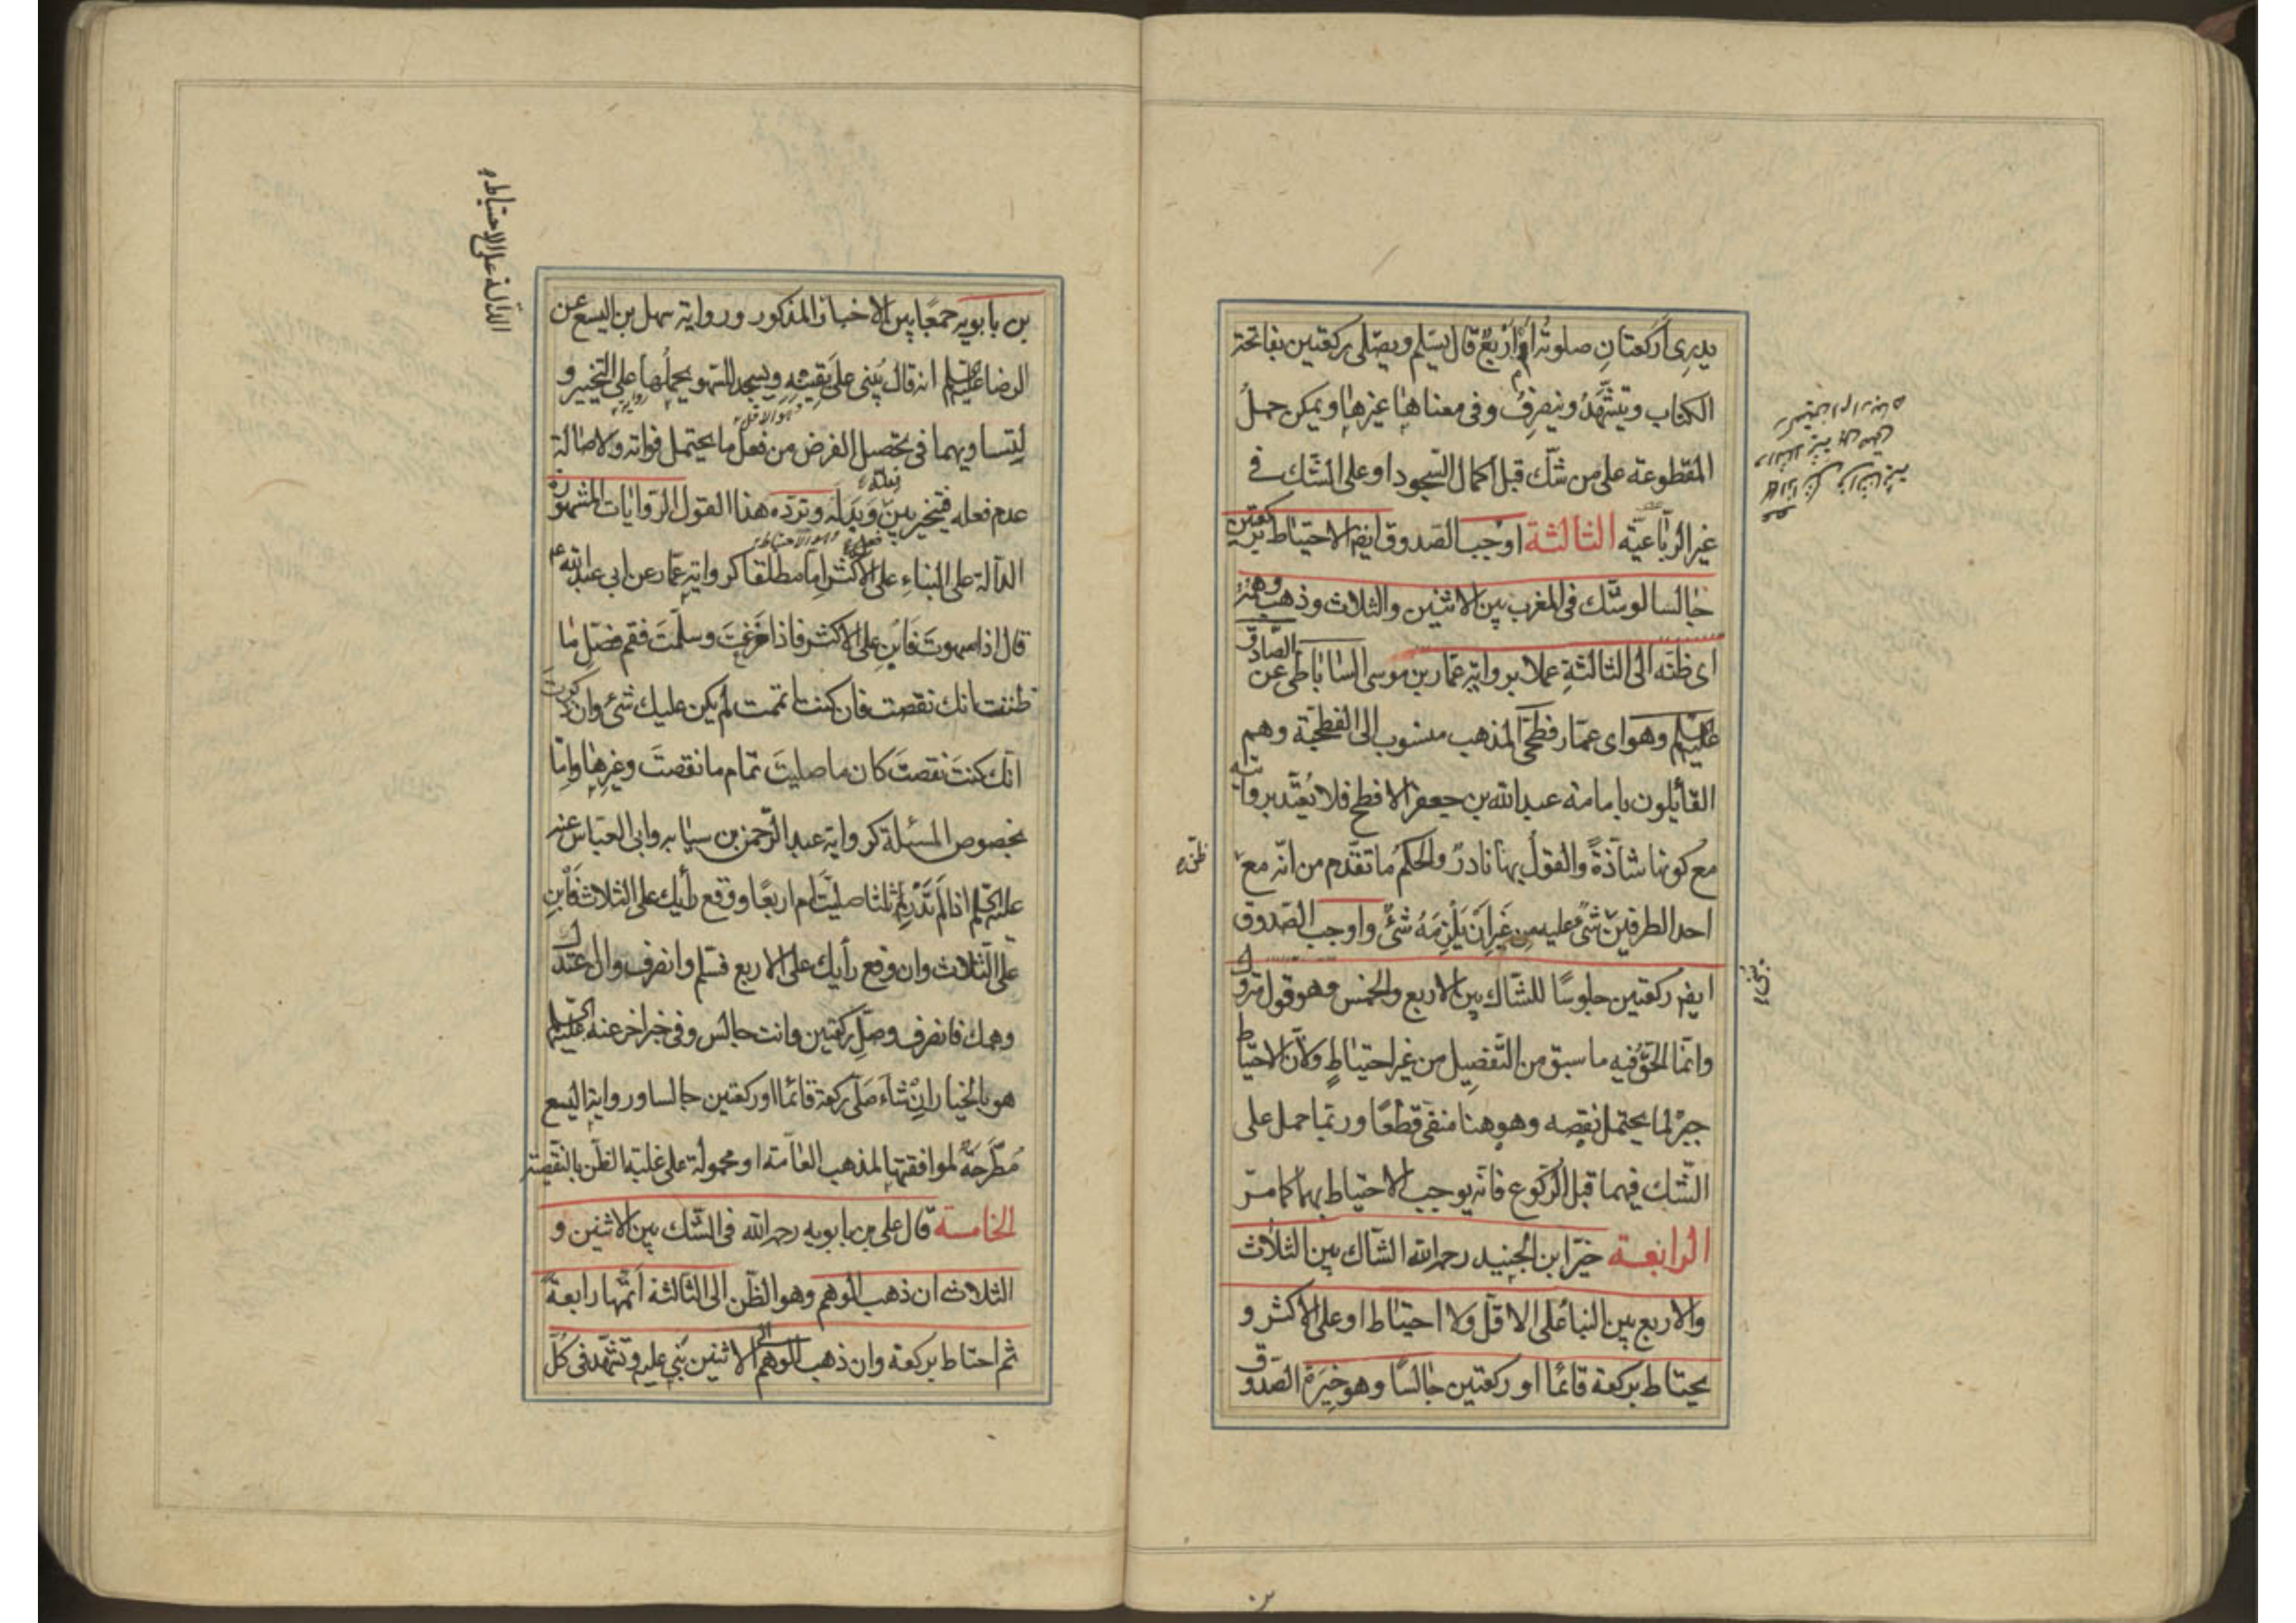 يدرى أركعتان صلوته أو أربع قال يسلم ويصلى ركعتين بفاتحة
الكتاب ويتشهد وينصرف وفى معناها غيرها ويمكن حمل
المقطوعة على من شك قبل اكمال السجود او على الشك فى
غير الرباعية الثالثة اوجب الصدوق ايضا الاحتياط بركعتين
جالسا لو شك فى المغرب بين الاثنين والثلاث وذهب وهمه
اى ظنه الى الثالثة عملا برواية عمار بن موسى الساباطى عن الصادق
عليه السلم وهو اى عمار فطحى المذهب منسوب الى الفطحية وهم
القائلون بامامة عبد الله بن جعفر الافطح فلا يعتد بروايته
مع كونها شاذة والقول بها نادر والحكم ما تقدم من انه مع
ظن
احد الطرفين يبنى عليه من غير ان يلزمه شئ واوجب الصدوق
ايضا ركعتين جلوسا للشاك بين الاربع والخمس وهو قول متروك
وانما الحق فيه ما سبق من التفصيل من غير احتياط ولان الاحتياط
جبر لما يحتمل نقصه وهو هنا منفى قطعا وربما حمل على
الشك فيهما قبل الركوع فانه يوجب الاحتياط بهما كما مر
الرابعة خير ابن الجنيد رحمه الله الشاك بين الثلاث
والاربع بين البناء على الاقل ولا احتياط او على الاكثر و
يحتاط بركعة قائما او ركعتين جالسا وهو خيرة الصدوق
بن بابويه جمعا بين الاخبار المذكور ورواية سهل بن اليسع عن
الرضا عليه السلم انه قال يبنى على يقينه ويسجد للسهو بحملها على التخيير و
وهو الاقل
لتساويهما فى تحصيل الفرض من فعل ما يحتمل فواته ولاصالة
عدم فعله فيتخير بين وبدله وترده هذا القول الروايات المشهورة
فعله
وهو الاحتياط
الدالة على البناء على الاكثر اما مطلقا كرواية عمار عن ابى عبد الله ع
قال اذا سهوت فابن على الاكثر فاذا فرغت وسلمت فقم فصل ما
ظننت انك نقصت فان كنت اتممت لم يكن عليك شئ وان ذكرت
انك كنت نقصت كان ما صليت تمام ما نقصت وغيرها واما
بخصوص المسئلة كرواية عبد الرحمن بن سيابه وابى العباس عنه
عليه السلم اذا لم تدر أثلثا صليت ام اربعا ووقع رأيك على الثلاث فابن
على الثلاث وان وقع رأيك على الاربع فسلم وانصرف وان اعتدل
وهمك فانصرف وصل ركعتين وانت جالس وفى خبر اخر عنه عليه السلم
هو بالخيار ان شاء صلى ركعة قائما او ركعتين جالسا ورواية اليسع
مطرحة لموافقتها لمذهب العامة او محمولة على غلبة الظن بالنقيصة
الخامسة قال على بن بابويه رحمه الله فى الشك بين الاثنين و
الثلاث ان ذهب الوهم وهو الظن الى الثالثة اتمها رابعة
ثم احتاط بركعة وان ذهب الوهم الى الاثنين بنى عليه وتشهد فى كل
الدالة على الاحتياط